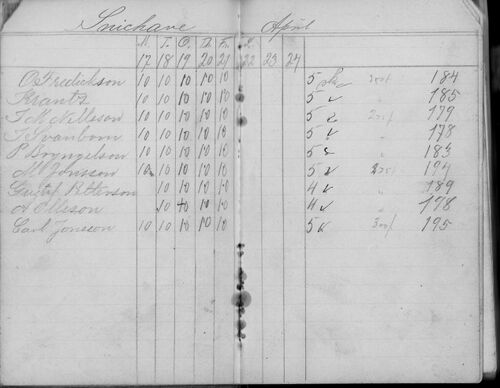 Snickare April
M. T. O. T. F. L.
17 18 19 20 21 22 23 24
O Fredickson 10 10 10 10 10 5 200/ 184
Krantz 10 10 10 10 10 5 " 185
10 10 10 10 10 5 200/ 179
10 10 10 10 10 5 " 178
P Bryngelson 10 10 10 10 10 5 " 183
M Jonsson 10 10 10 10 10 5 200/ 194
Gustaf Petterson 10 10 10 10 4 " 189
A Olleson 10 10 10 10 4 " 178
Carl Jonsson 10 10 10 10 10 5 300/ 195